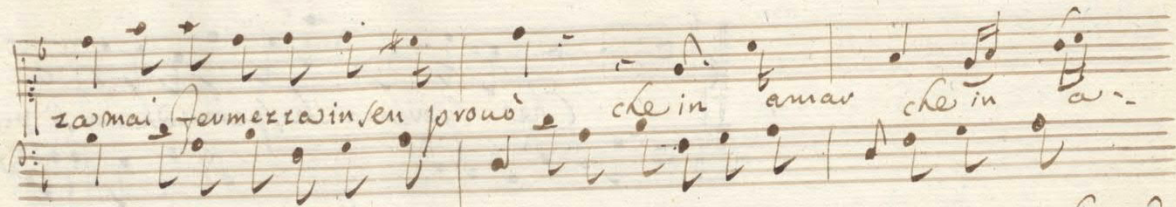 za mai fermezza in sen provò che in amar che in a--